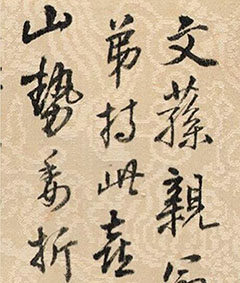 文蓀親家
弟持此卷
山勢委折